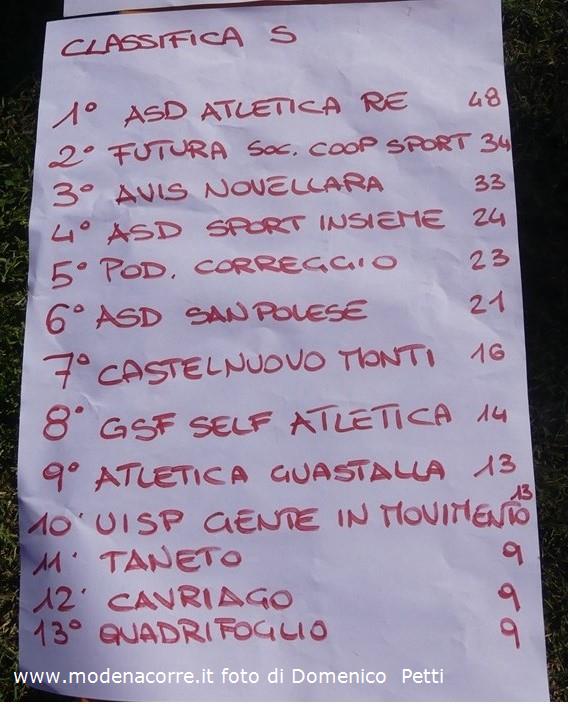 CLASSIFICA S
1° ASD ATLETICA RE 48
2° FUTURA SOC. COOP SPORT 34
3° AVIS NOVELLARA 33
4° ASD SPORT INSIEME 24
5° POD. CORREGGIO 23
6° ASD SANPOLESE 21
7° CASTELNUOVO MONTI 16
8° GSF SELF ATLETICA 14
9° ATLETICA GUASTALLA 13
10° UISP GENTE IN MOVIMENTO 13
11° TANETO 9
12° CAVRIAGO 9
13° QUADRIFOGLIO 9
www.modenacorre.it foto di Domenico Petti